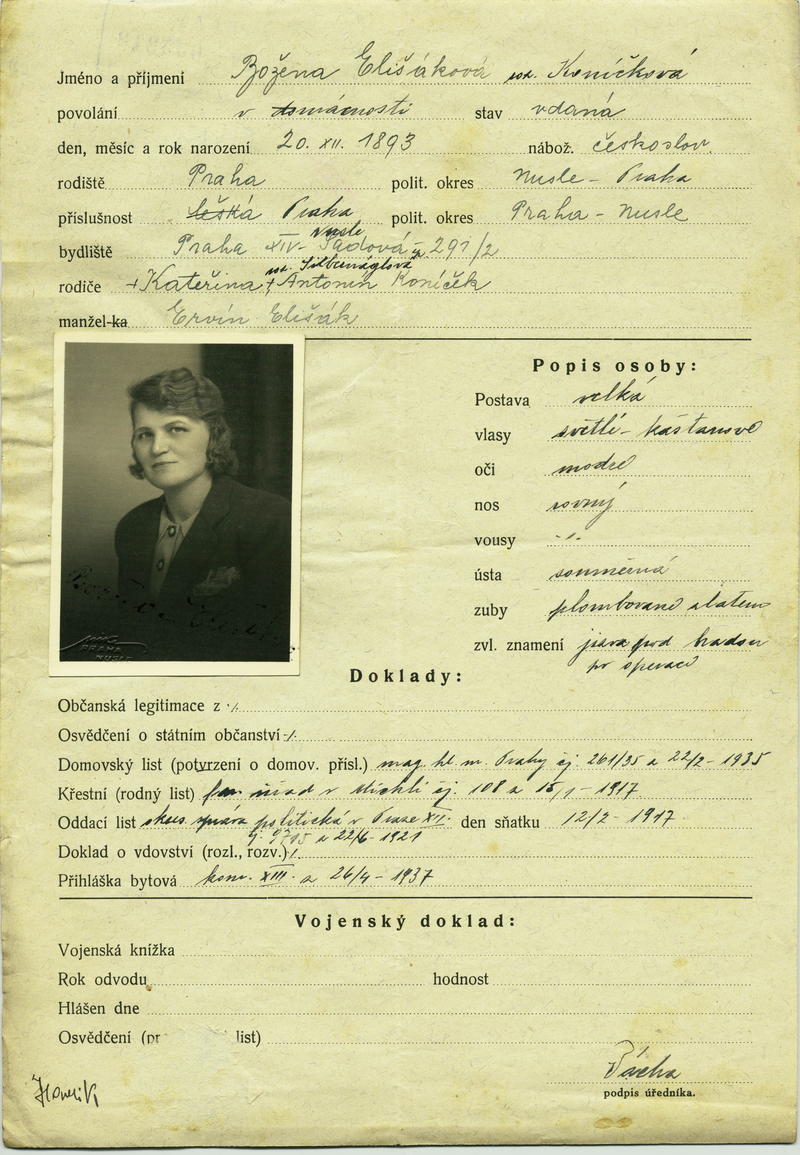 Jméno a příjmení Božena Elišáková roz. Koníčková
povolání v domácnosti stav vdaná
den, měsíc a rok narození 20. XII. 1893 nábož. českoslov.
rodiště Praha polit. okres Nusle - Praha
příslušnost Praha polit. okres Praha - Nusle
Nusle
bydliště Praha XIV- Sadová 291/2
roz. Silbernáglová
rodiče + Kateřina + Antonín Koníček
manžel-ka Ervín Elišák
Popis osoby:
Postava velká
vlasy světlé - kaštanové
oči modré
nos rovný
vousy -"-
ústa souměrná
zuby plombované zlatem
zvl. znamení jizva pod bradou
po operaci
PRAHA
NUSLE
Doklady:
Občanská legitimace z ./.
Osvědčení o státním občanství -/.
Domovský list (potvrzení o domov. přísl.) mag. hl. m. Prahy čj. 261/35 z 22/2 - 1935
Křestní (rodný list) far. úřad v Michli čj. 108 z 15/1 - 1917
Oddací list správa politická v Praze XII. den sňatku 12/2 - 1917
čj. 9715 z 22/6 - 1921
Doklad o vdovství (rozl., rozv.) /.
Přihláška bytová kom. XIII. z 26/4 - 1937
Vojenský doklad:
Vojenská knížka
Rok odvodu hodnost
Hlášen dne
Osvědčení (pr list)
Pácha
podpis úředníka.